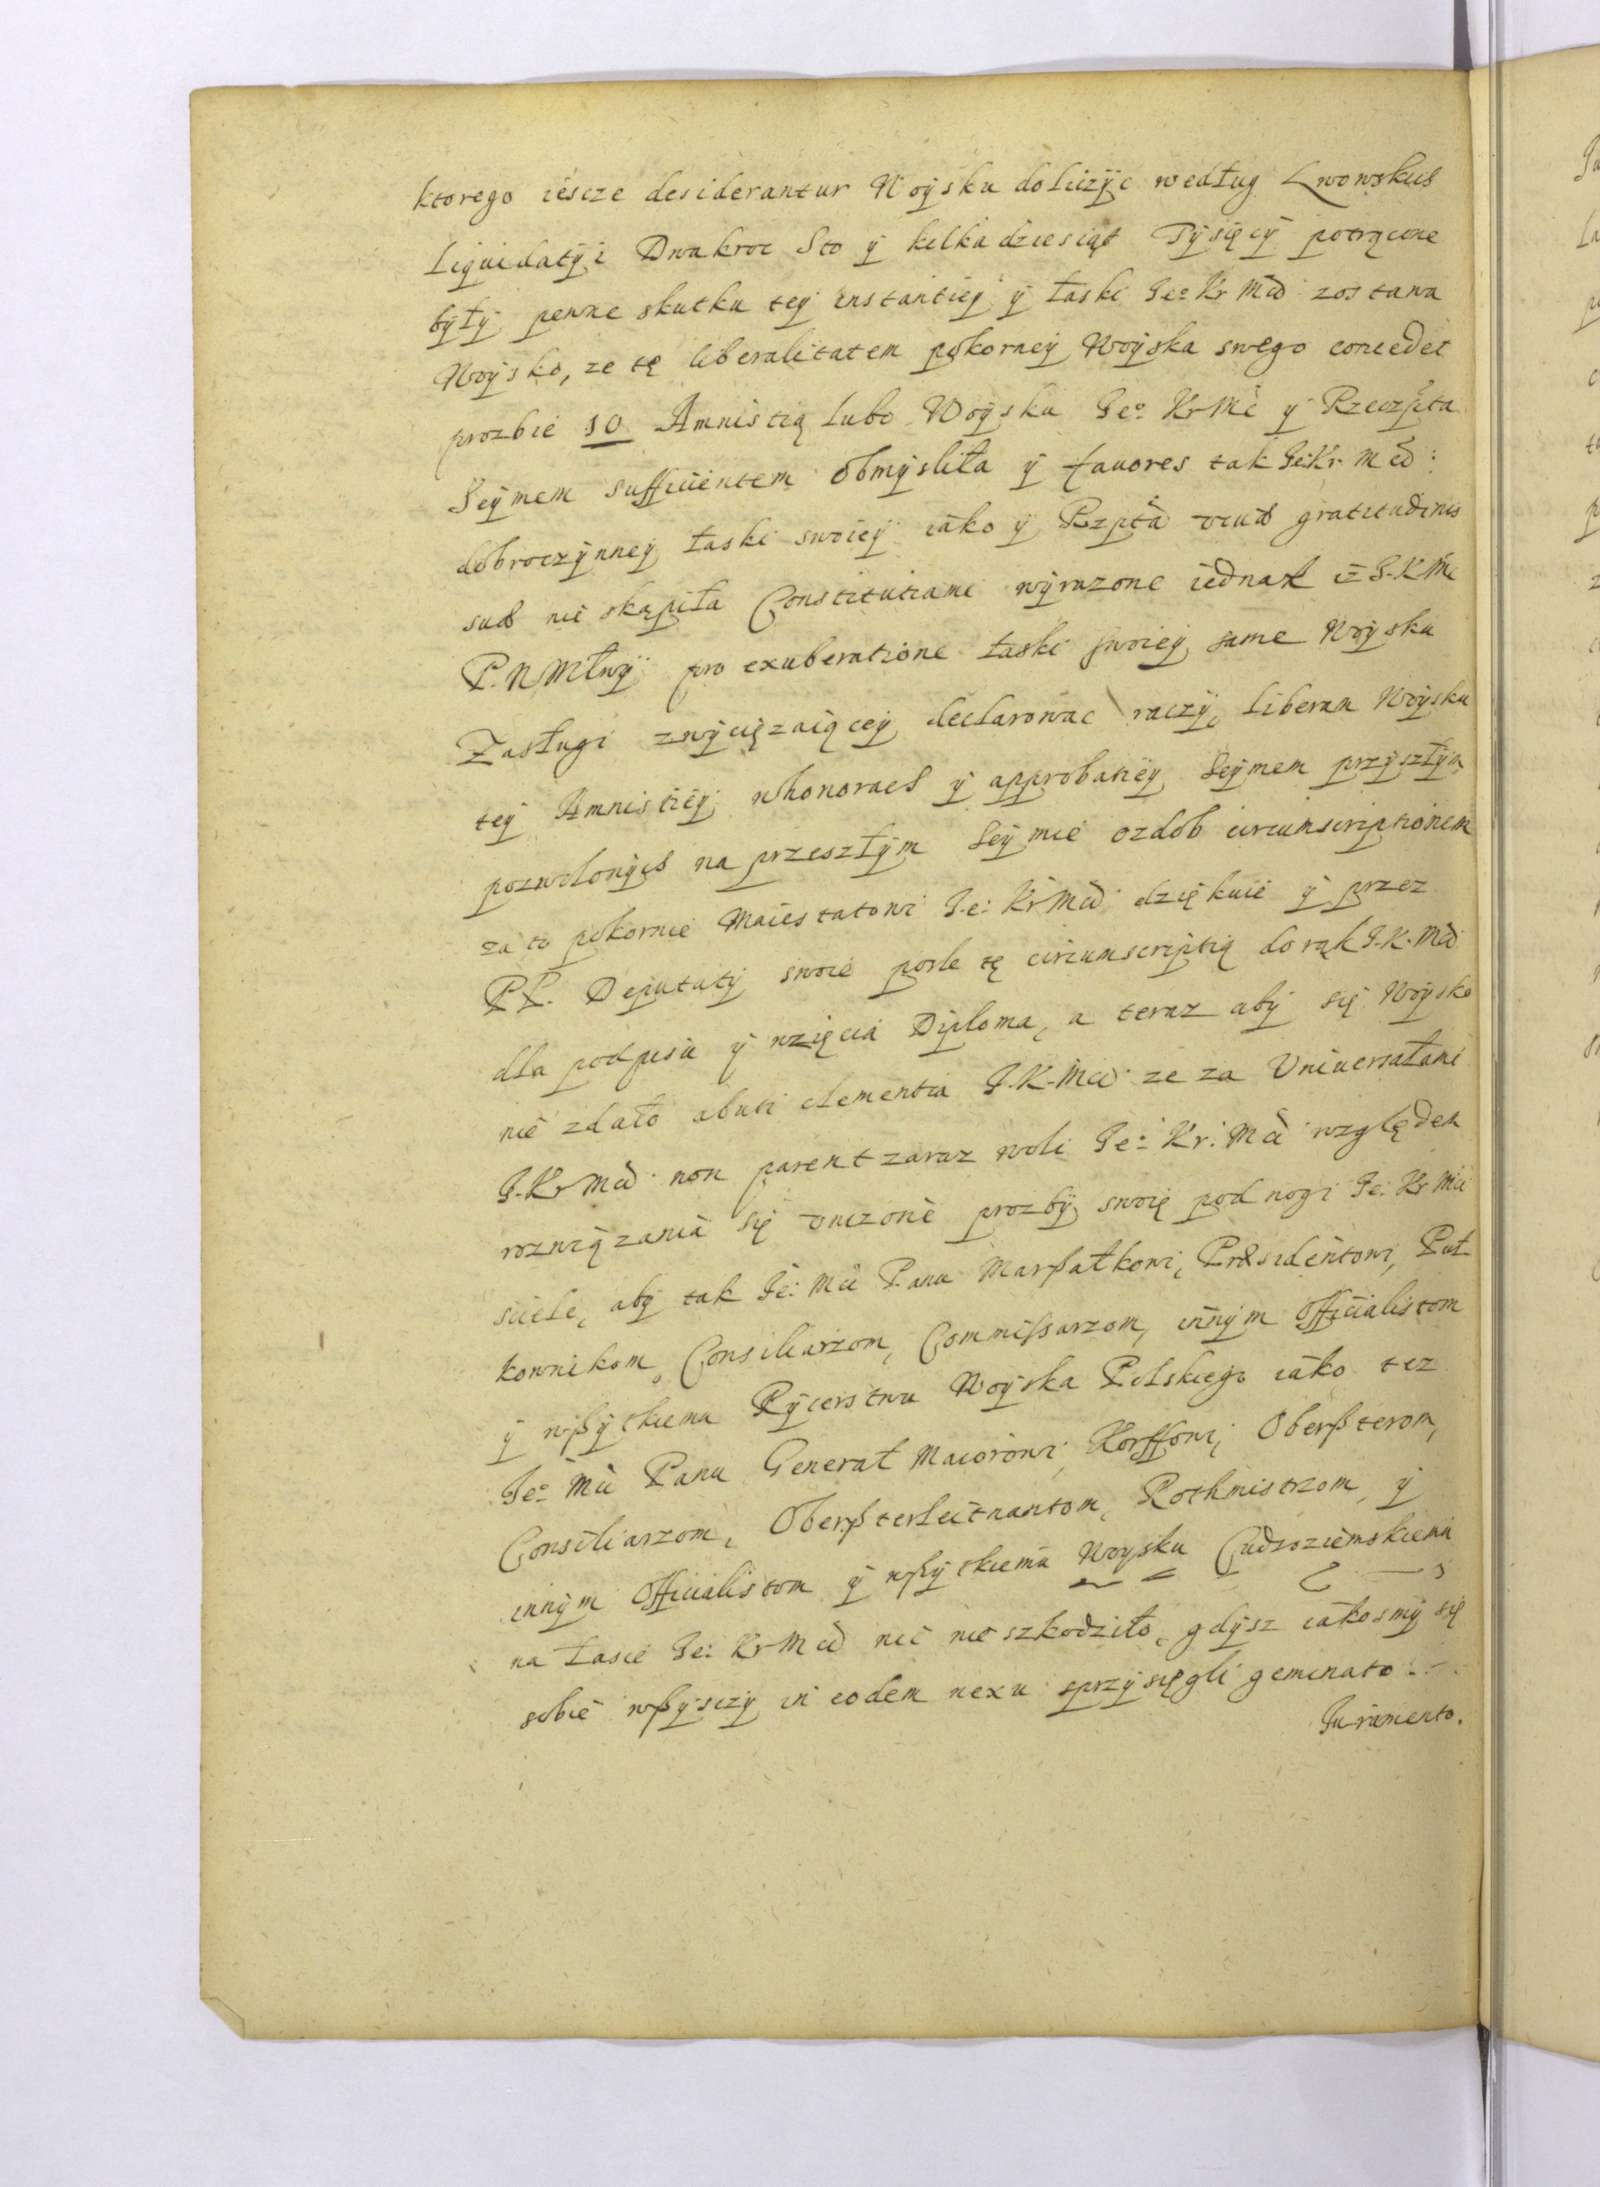 ktorego iescze desiderantur Woysku doliczyc według Lwowskich
Liquidatyi Dwakroc Sto y kilkadziesiąt Tysięcy potrącone
były penne skutku tey instantiey y łaski Jeo Kr Mci zostawa
Woysko, ze tę liberalitatem pokorney Woyska swego concedet
prozbie 10 Amnistią lubo Woysku Jeo Kr Mć y Rzeczpta
Seymem sufficientem obmysliła y fauores tak Je: Kr. Mci:
dobroczynney łaski swoiey iako y Rzpta gratitudinis
suæ nie skąpiła Constitutiami wyrazone iednak iz J. K. Mc
P. N. Młwy pro exuberatione łaski swoiey same Woysku
Zasługi zwycięzaiącey declarowac raczy, liberam Woysku
tey Amnistiey whonorach y approbatiey Seymem przyszłym
pozwolonych na przeszłym Seymie ozdob circumscriptionem
za to pokornie Maiestatowi Je: Kr Mci dziękuie y przez
PP. Deputaty swoie posle tę circumscriptią do rąk J. K. Mci
dla podpisu y wzięcia Diploma, a teraz aby się Woysko
nie zdało abuti clementia J. K. Mci ze za Uniuersałami
J. Kr Mci non parent zaraz woli Jeo Kr: Mci względem
rozwiązania się vnizone prozby swoię pod nogi Je: Kr Mci
sciele, aby tak Je: Mci Panu Marszałkowi, Præsidentowi, Puł
kownikom, Consiliarzom, Commissarzom, innym Officialistom
y wszytkiemu Rycerstwu Woyska Polskiego iako tez
Jeo Mci Panu Generał Maiorowi Korffowi, Oberszterom,
Consiliarzom, Oberszterleitnantom, Rothmistrzom, y
innym Officialistom y wszytkiemu Woysku Cudzoziemskiemu
na łasce Je: Kr Mci nic nie szkodziło, gdysz iakosmy się
sobie wszyscy in eodem nexu sprzysięgli geminato
Juramento.